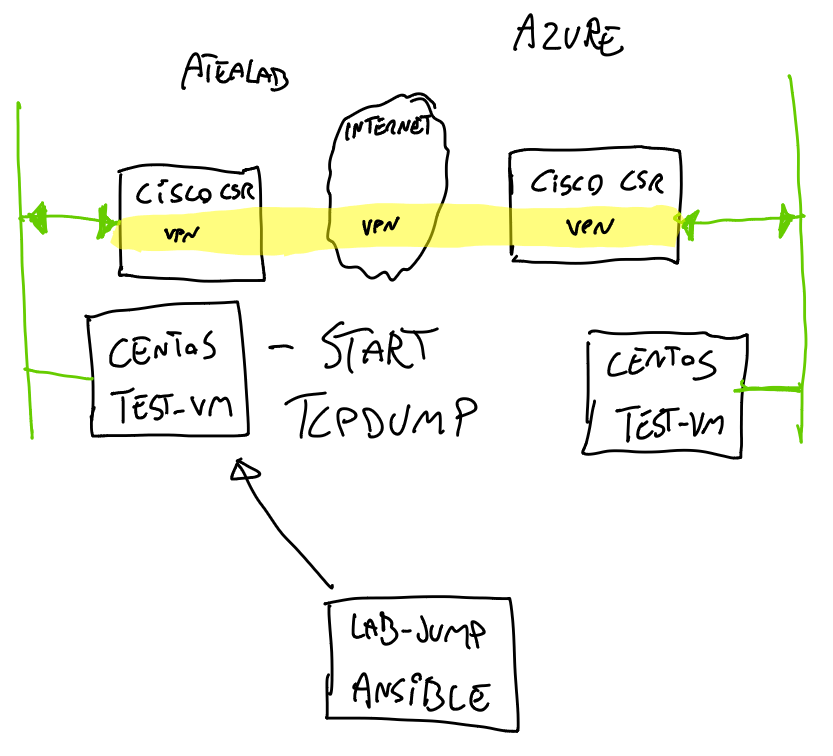 AZURE
ATEALAB
INTERNET
CISCO CSR
VPN
VPN
CISCO CSR
VPN
CENTOS
TEST-VM
- START
TCPDUMP
CENTOS
TEST-VM
LAB-JUMP
ANSIBLE